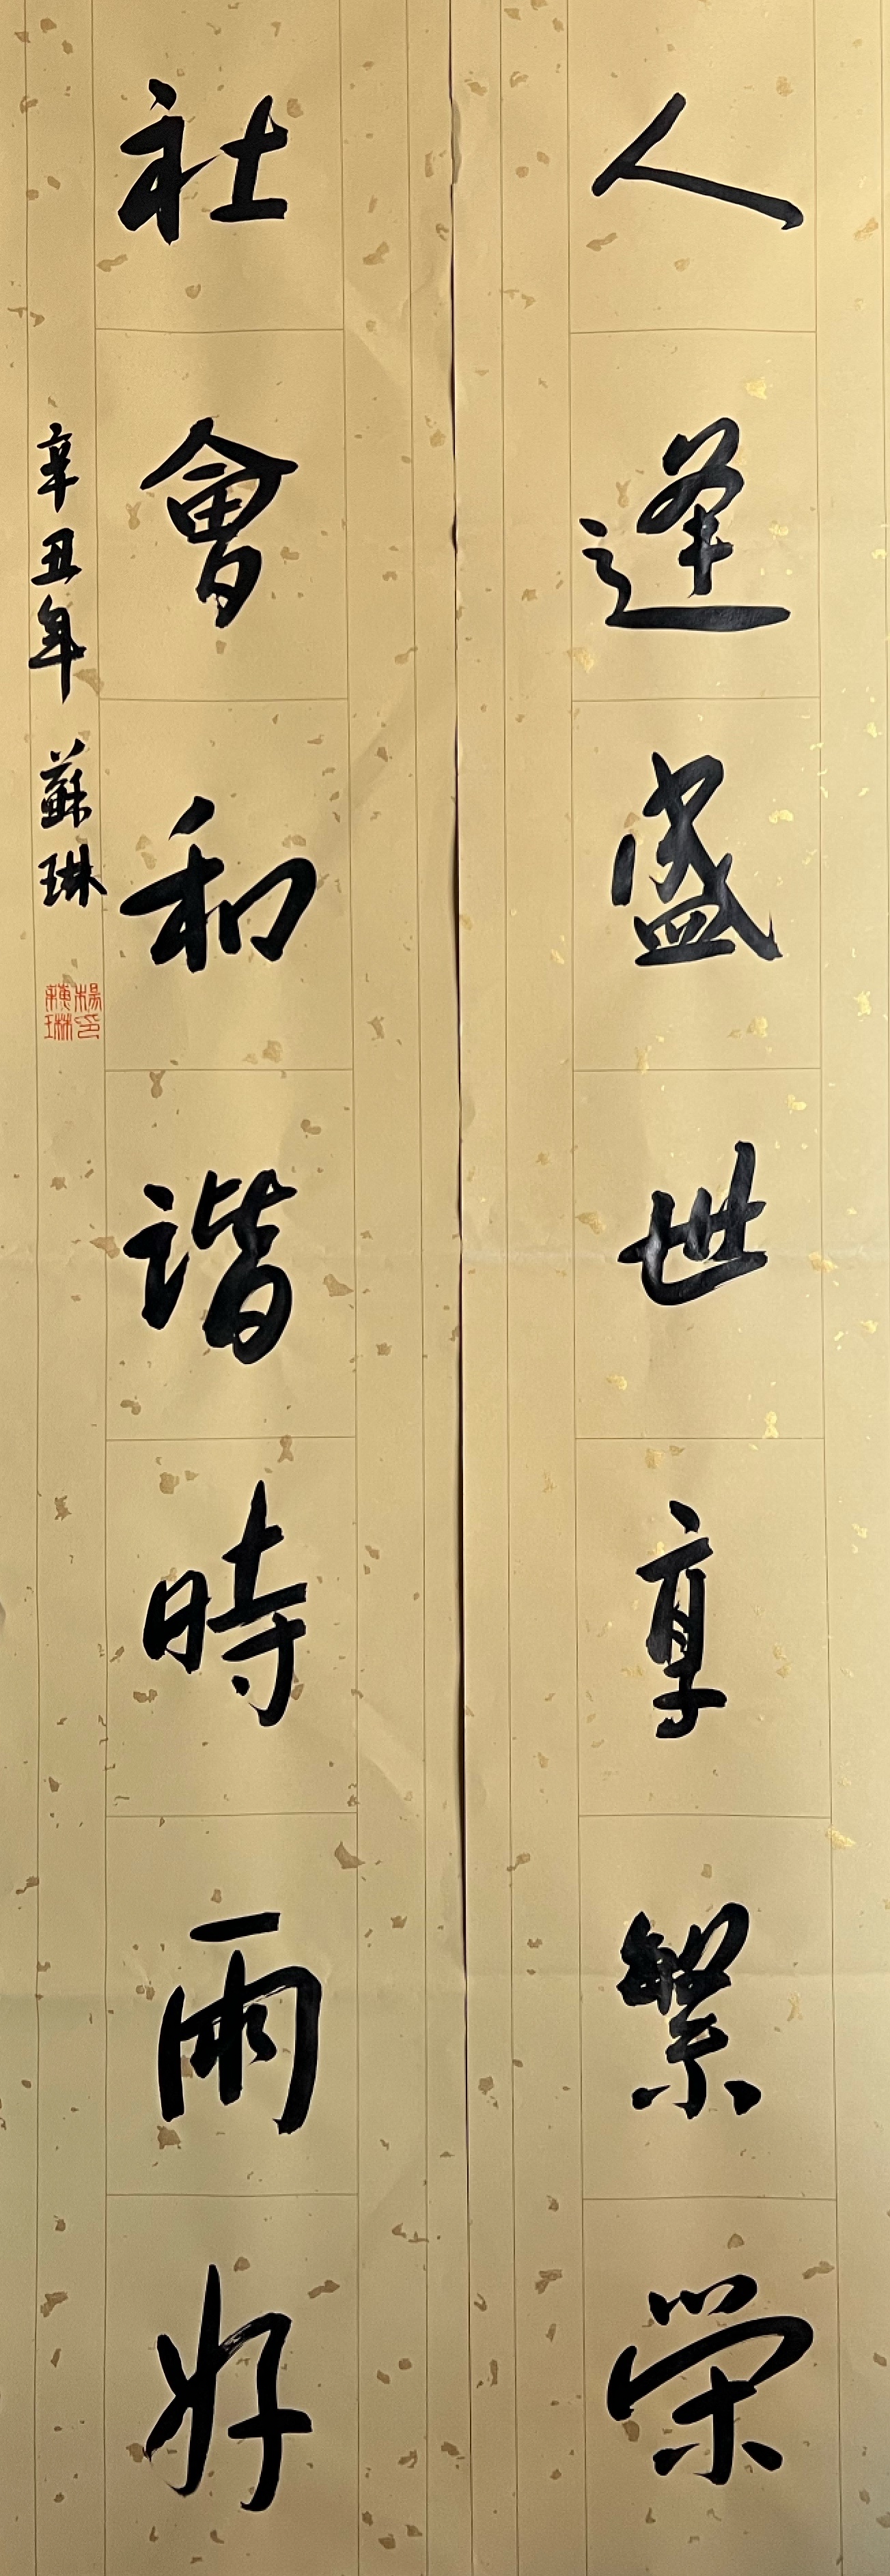 人逢盛世享繁榮
社會和諧時雨好
辛丑年 蘇琳